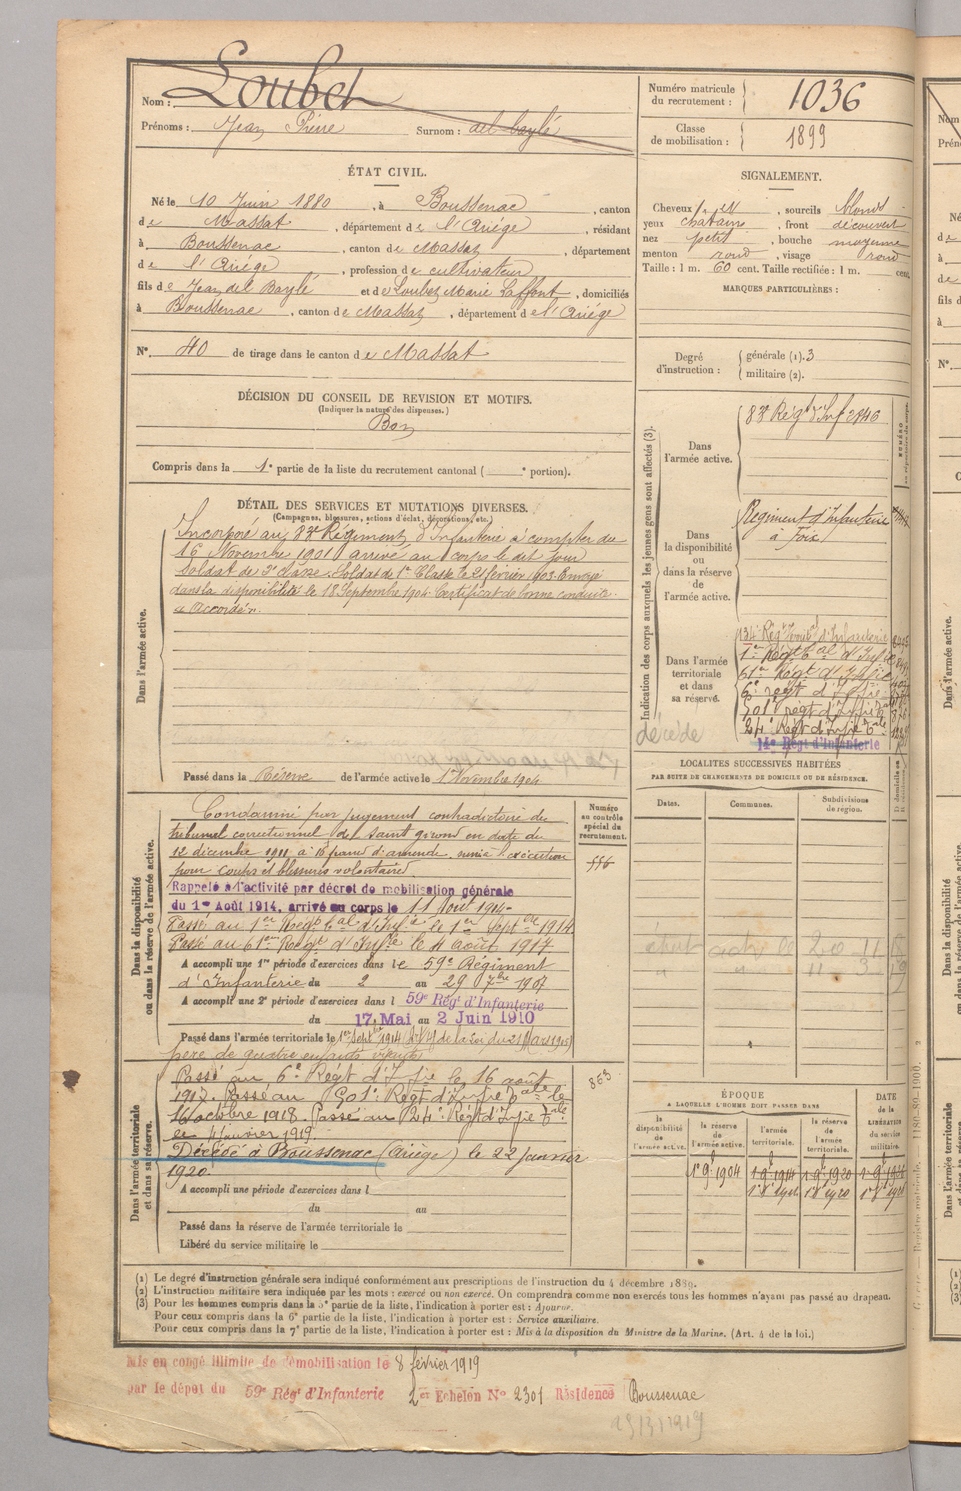 Nom : Loubet
Prénoms : Jean Pierre Surnom : del baylé
Numéro matricule du recrutement : 1036
Classe de mobilisation : 1899
ÉTAT CIVIL.
Né le 10 Juin 1880, à Boussenac, canton
de Massat, département de l'Ariège, résidant
à Boussenac, canton de Massat, département
de l'Ariège, profession de cultivateur
fils de Jean del Baylé et de Loubet Marie Laffont, domiciliés
à Boussenac, canton de Massat, département de l'Ariège
N° 40 de tirage dans le canton de Massat
SIGNALEMENT.
Cheveux , sourcils blonds
yeux chatains, front découvert
nez petit, bouche moyenne
menton rond, visage rond
Taille : 1 m. 60 cent. Taille rectifiée : 1 m. cent.
MARQUES PARTICULIÈRES :
Degré d'instruction : générale (1). 3
militaire (2).
DÉCISION DU CONSEIL DE REVISION ET MOTIFS.
(Indiquer la nature des dispenses.)
Bon
Compris dans la 1e partie de la liste du recrutement cantonal ( e portion).
DÉTAIL DES SERVICES ET MUTATIONS DIVERSES.
(Campagnes, blessures, actions d'éclat, décorations, etc.)
Dans l'armée active.
Incorporé au 83e Régiment d'Infanterie à compter du
16 Novembre 1901 arrivé au corps le dit jour
Soldat de 2e classe. Soldat de 1e Classe le 21 février 1903. Envoyé
dans la disponibilité le 18 Septembre 1904. Certificat de bonne conduite
"Accordé".
Passé dans la Réserve de l'armée active le 1 Novembre 1904
Indication des corps auxquels les jeunes gens sont affectés (3).
Dans l'armée active.
83e Régt d'Inf 2846
Dans la disponibilité ou dans la réserve de l'armée active.
Régiment d'Infanterie
à Foix
Dans l'armée territoriale et dans sa réserve.
134e Régt territal d'Infanterie
1er Régt tal d'Inf
61e Régt d'Infie
6e régt d'Infie
501e régt d'Infie
24e Régt d'Infie tale
14e Régt d'Infanterie
décédé
LOCALITÉS SUCCESSIVES HABITÉES
PAR SUITE DE CHANGEMENTS DE DOMICILE OU DE RÉSIDENCE.
Dates. Communes. Subdivisions de région.
Dans la disponibilité ou dans la réserve de l'armée active.
Numéro au contrôle spécial du recrutement.
556
Condamné par jugement contradictoire du
tribunal correctionnel de Saint Girons en date du
12 décembre 1911 à 16 francs d'amende, sursis à l'exécution
pour coups et blessures volontaires
Rappelé à l'activité par décret de mobilisation générale
du 1er Août 1914, arrivé au corps le 11 Août 1914.
Passé au 1er Régt tal d'Infie le 1er Septbre 1914
Passé au 61e Régt d'Infie le 4 août 1917
A accompli une 1re période d'exercices dans le 59e Régiment
d'Infanterie du 2 au 29 7bre 1907
A accompli une 2e période d'exercices dans l 59e Régt d'Infanterie
du 17 Mai au 2 Juin 1910
Passé dans l'armée territoriale le 1er Septbre 1914 (de la Loi du 21 Mars 1905)
père de quatre enfants vivants
Dans l'armée territoriale et dans sa réserve.
863
Passé au 6e Régt d'Infie le 16 août
1917. Passé au 501e Régt d'Infie tale le
16 octobre 1918. Passé au 24e Régt d'Infie tale
le 4 Janvier 1919.
Décédé à Boussenac (Ariège) le 22 Janvier
1920.
A accompli une période d'exercices dans l
du au
Passé dans la réserve de l'armée territoriale le
Libéré du service militaire le
ÉPOQUE
A LAQUELLE L'HOMME DOIT PASSER DANS
la disponibilité de l'armée active. la réserve de l'armée active. l'armée territoriale. la réserve de l'armée territoriale. DATE de la LIBÉRATION du service militaire.
1 9 1904 1 9 1914 1 9 1920 1 9 1926
(1) Le degré d'instruction générale sera indiqué conformément aux prescriptions de l'instruction du 4 décembre 1889.
(2) L'instruction militaire sera indiquée par les mots : exercé ou non exercé. On comprendra comme non exercés tous les hommes n'ayant pas passé au drapeau.
(3) Pour les hommes compris dans la 5e partie de la liste, l'indication à porter est : Ajourné.
Pour ceux compris dans la 6e partie de la liste, l'indication à porter est : Service auxiliaire.
Pour ceux compris dans la 7e partie de la liste, l'indication à porter est : Mis à la disposition du Ministre de la Marine. (Art. 4 de la loi.)
Mis en congé illimité de démobilisation le 8 février 1919
par le dépôt du 59e Régt d'Infanterie 2er Echelon N° 2301 Résidence Boussenac